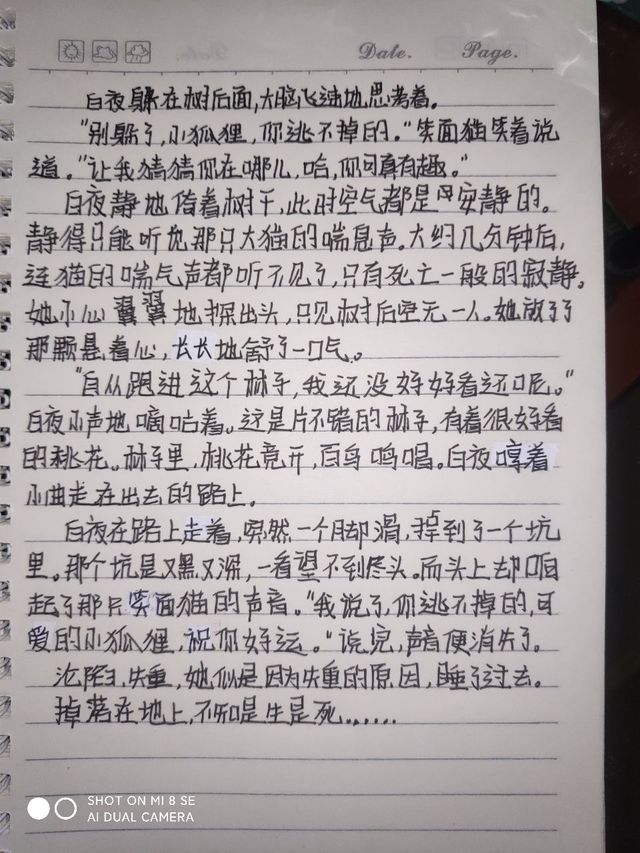 Date. Page.
白夜躲在树后面,大脑飞速地思考着。
"别躲了,小狐狸,你逃不掉的。"笑面猫笑着说
道。"让我猜猜你在哪儿,哈,你可真有趣。"
白夜静地倚着树干,此时空气都是安静的。
静得只能听见那只大猫的喘息声。大约几分钟后,
连猫的喘气声都听不见了,只有死亡一般的寂静。
她小心翼翼地探出头,只见树后空无一人。她放下了
那颗悬着心,长长地舒了一口气。
"自从跑进这个林子,我还没好好看过呢。"
白夜小声地嘀咕着。这是片不错的林子,有着很好看
的桃花。林子里,桃花竞开,百鸟鸣唱。白夜哼着
小曲走在出去的路上。
白夜在路上走着,突然一个脚滑,掉到了一个坑
里。那个坑是又黑又深,一看望不到尽头。而头上却响
起了那只笑面猫的声音。"我说了,你逃不掉的,可
爱的小狐狸,祝你好运。"说完,声音便消失了。
沦陷,失重,她似是因为失重的原因,睡了过去。
掉落在地上,不知是生是死……
SHOT ON MI 8 SE
AI DUAL CAMERA